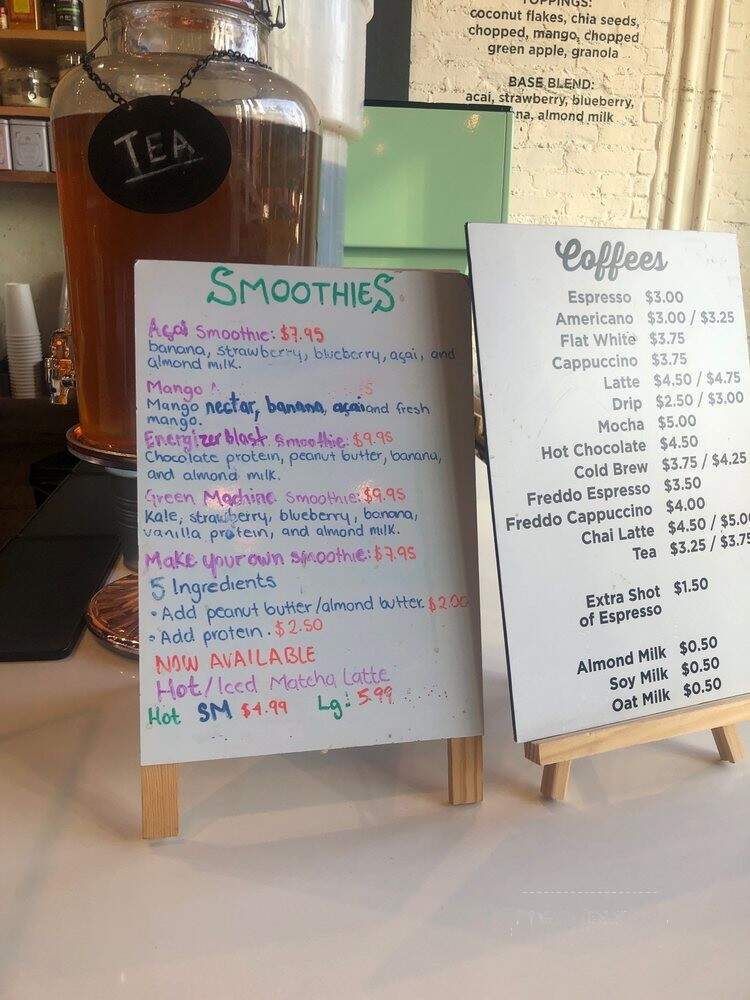 TOPPINGS:
coconut flakes, chia seeds,
chopped, mango, chopped
green apple, granola
BASE BLEND:
acai, strawberry, blueberry,
almond milk
TEA
SMOOTHIES
Açai Smoothie: $7.95
banana, strawberry, blueberry, açai, and
almond milk.
Mango
Mango nectar, banana, açai and fresh
mango.
Energizer blast Smoothie: $9.95
Chocolate protein, peanut butter, banana,
and almond milk.
Green Machine Smoothie: $9.95
Kale, strawberry, blueberry, banana,
vanilla protein, and almond milk.
Make your own smoothie: $7.95
5 Ingredients
• Add peanut butter/almond butter. $2.00
• Add protein. $2.50
NOW AVAILABLE
Hot/Iced Matcha Latte
Hot SM $4.99 Lg: 5.99
Coffees
Espresso $3.00
Americano $3.00 / $3.25
Flat White $3.75
Cappuccino $3.75
Latte $4.50 / $4.75
Drip $2.50 / $3.00
Mocha $5.00
Hot Chocolate $4.50
Cold Brew $3.75 / $4.25
Freddo Espresso $3.50
Freddo Cappuccino $4.00
Chai Latte $4.50 / $5.00
Tea $3.25 / $3.75
Extra Shot $1.50
of Espresso
Almond Milk $0.50
Soy Milk $0.50
Oat Milk $0.50